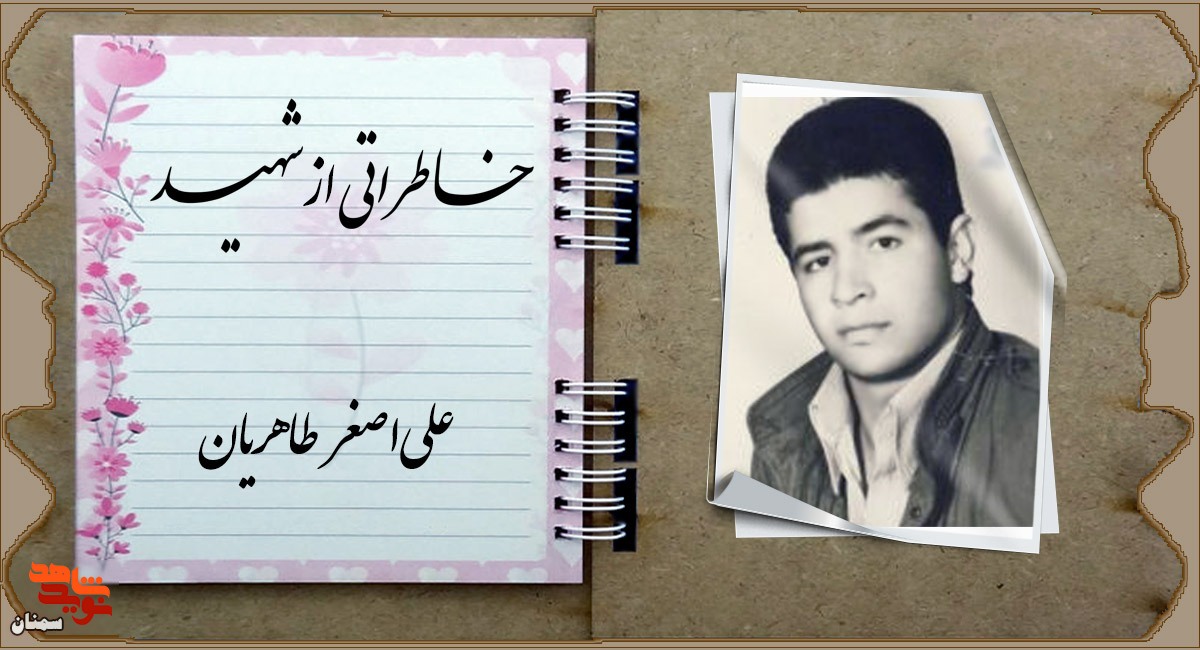 خاطراتی از شهید
علی اصغر طاهریان
نوید شاهد
سمنان